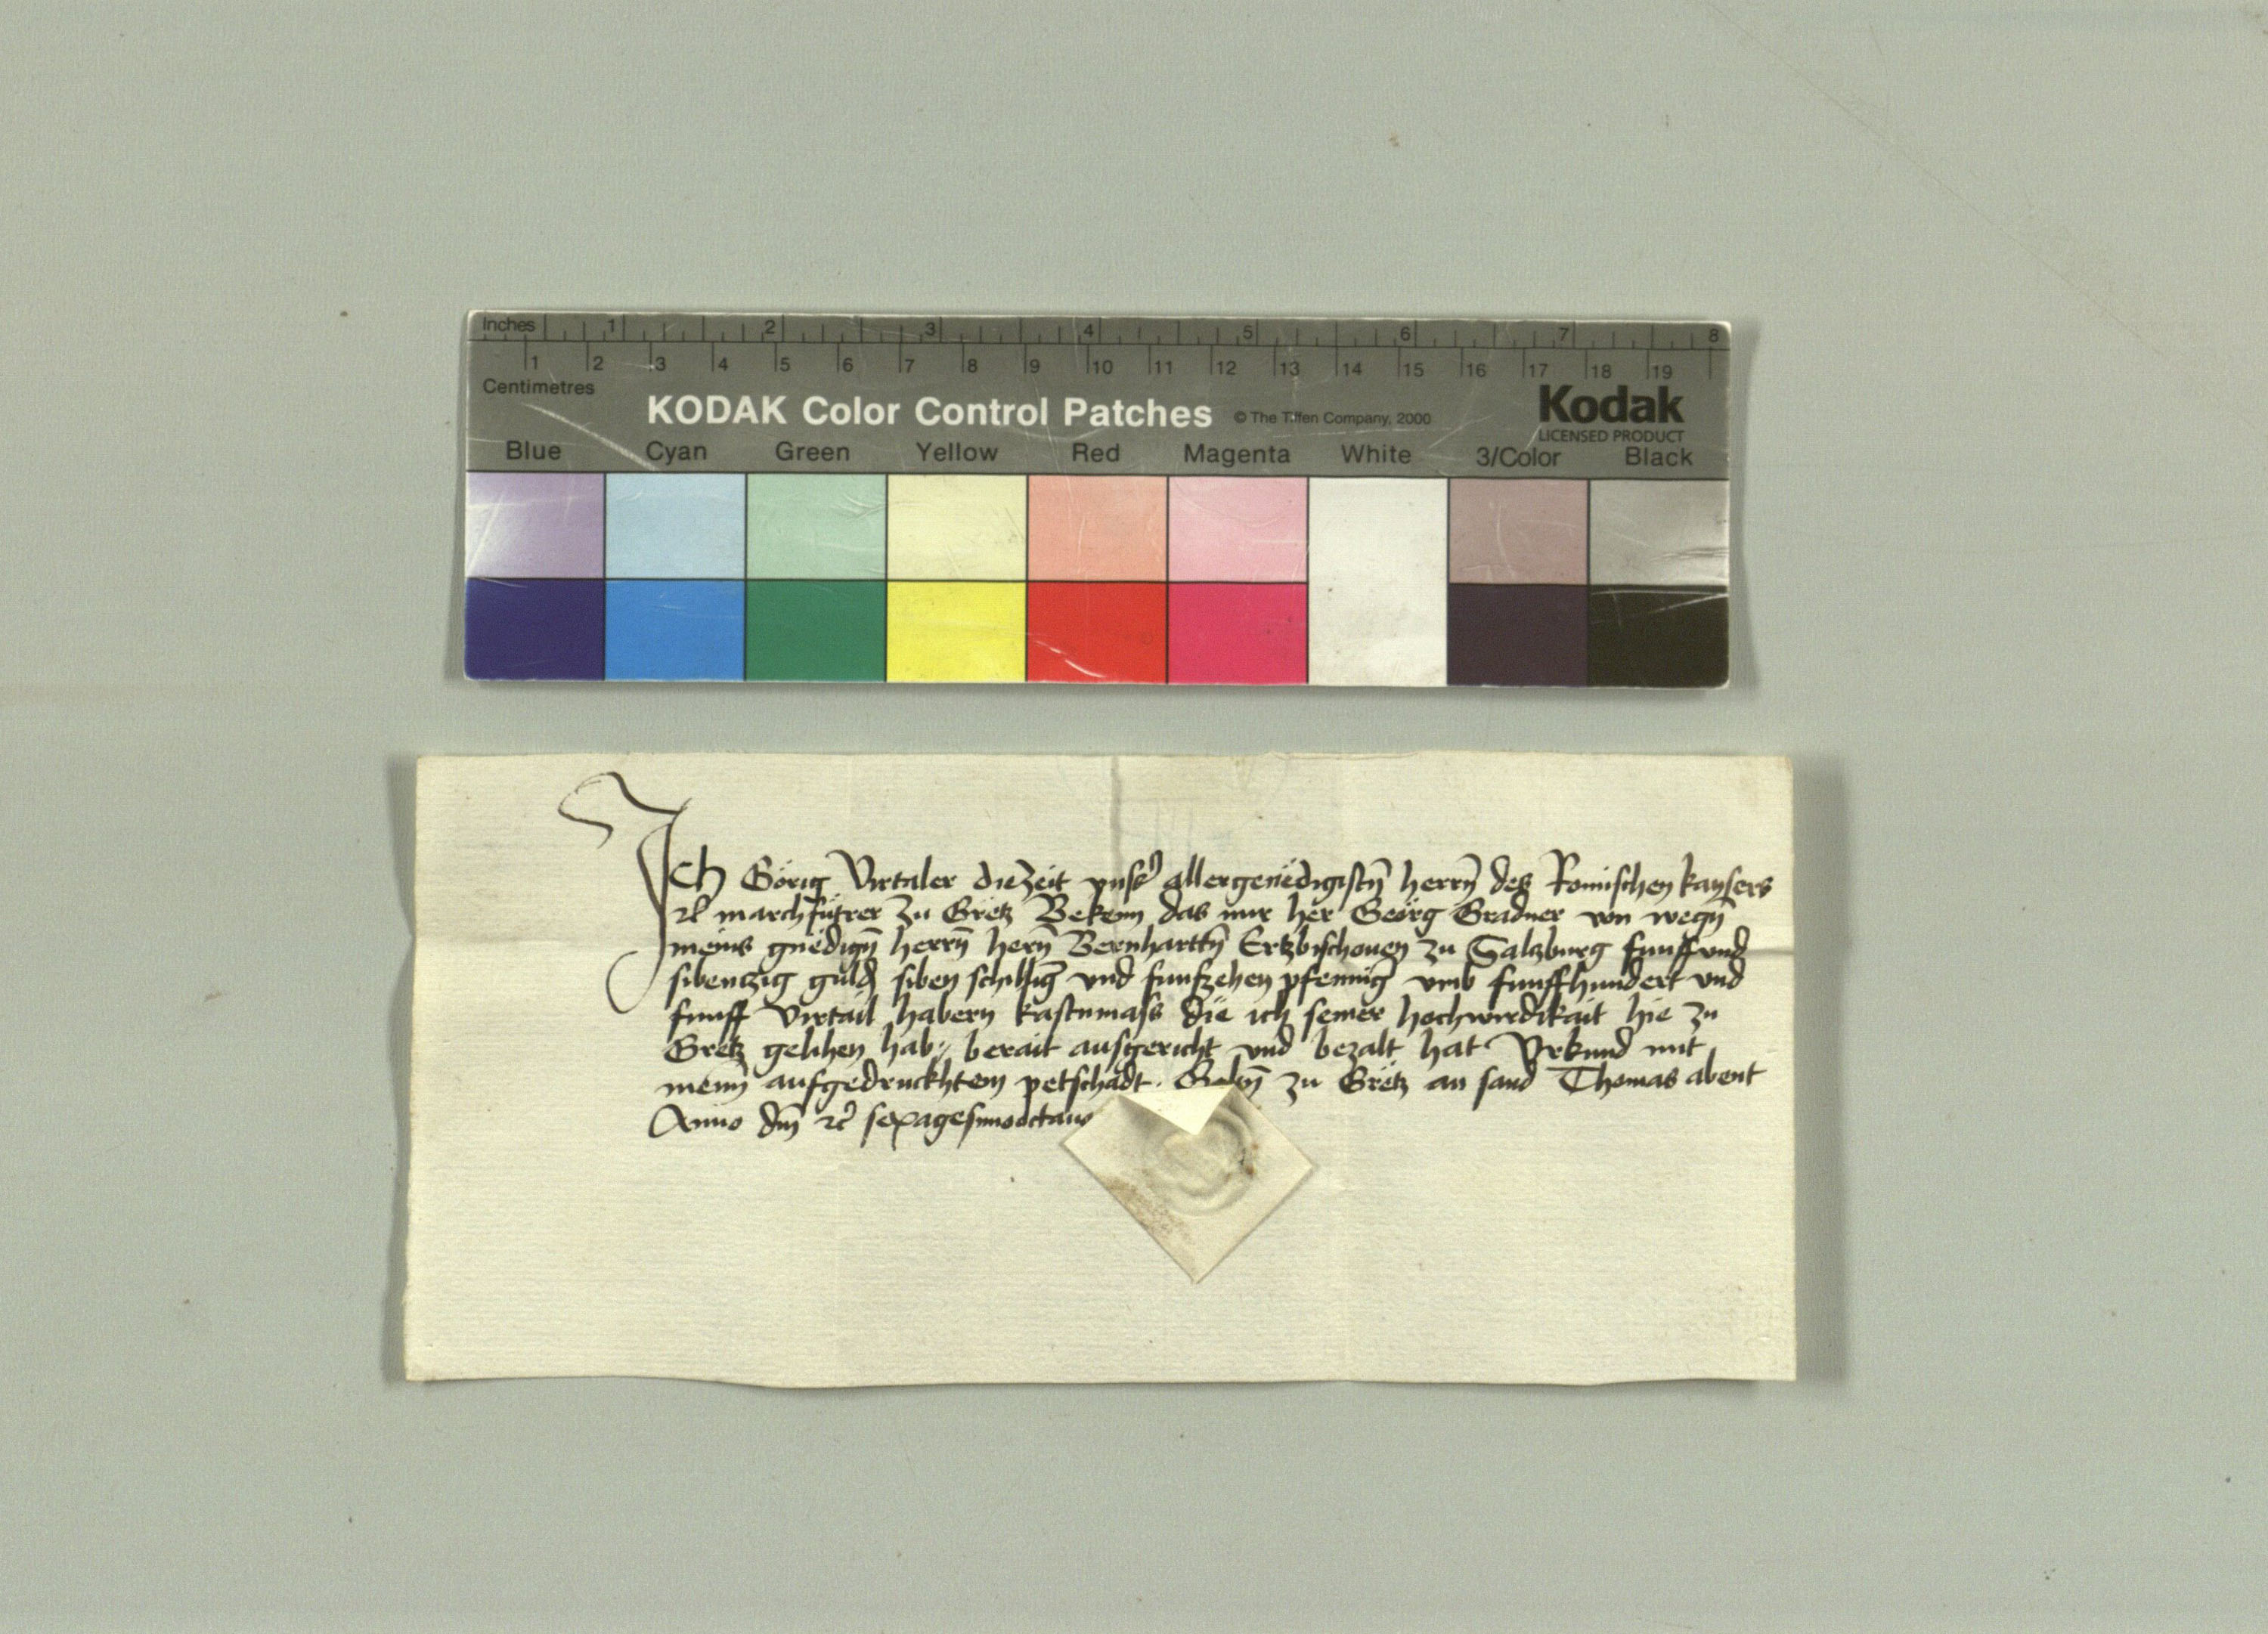 Inches 1 2 3 4 5 6 7 8
1 2 3 4 5 6 7 8 9 10 11 12 13 14 15 16 17 18 19
Centimetres
KODAK Color Control Patches © The Tiffen Company, 2000 Kodak
LICENSED PRODUCT
Blue Cyan Green Yellow Red Magenta White 3/Color Black
Ich Görig Virtaler dieZeit vnsers allergenëdigistn̄ herrn̄ des Romischen kaysers
etc marchfutrer zu Gretz Bekenn das mir her Georg Gradner von wegn̄
meins gnëdign̄ herrn̄ hern̄ Bernharttn̄ Ertzbischouen zu Salzburg funffvnd
sibentzig guld siben schilling vnd funfzehen pfennīg vmb funffhundert vnd
funff virtail habern kastnmass die ich seiner hochwirdikait hie zu
Gretz gelihen hab berait ausgericht vnd bezalt hat Vrkund mit
meinn̄ aufgedruckhtem petschadt. Gebn̄ zu Grëtz an sand Thomas abent
Anno dm̄ etc sexagesimooctauo